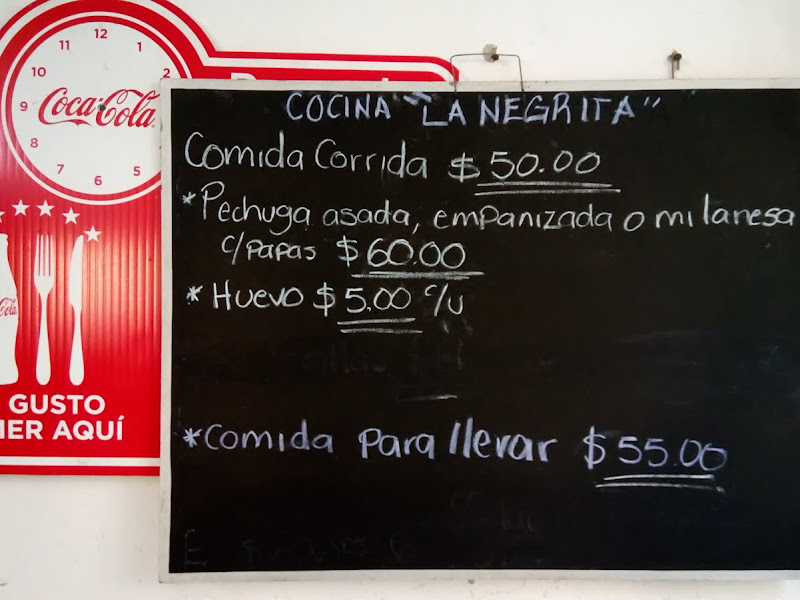 12
11
10
9
8
7
6
5
2
Coca-Cola
COCINA "LA NEGRITA"
Comida Corrida $50.00
*Pechuga asada, empanizada o milanesa
c/papas $60.00
*Huevo $5.00 c/u
*Comida para llevar $55.00
Cola
GUSTO
MER AQUÍ